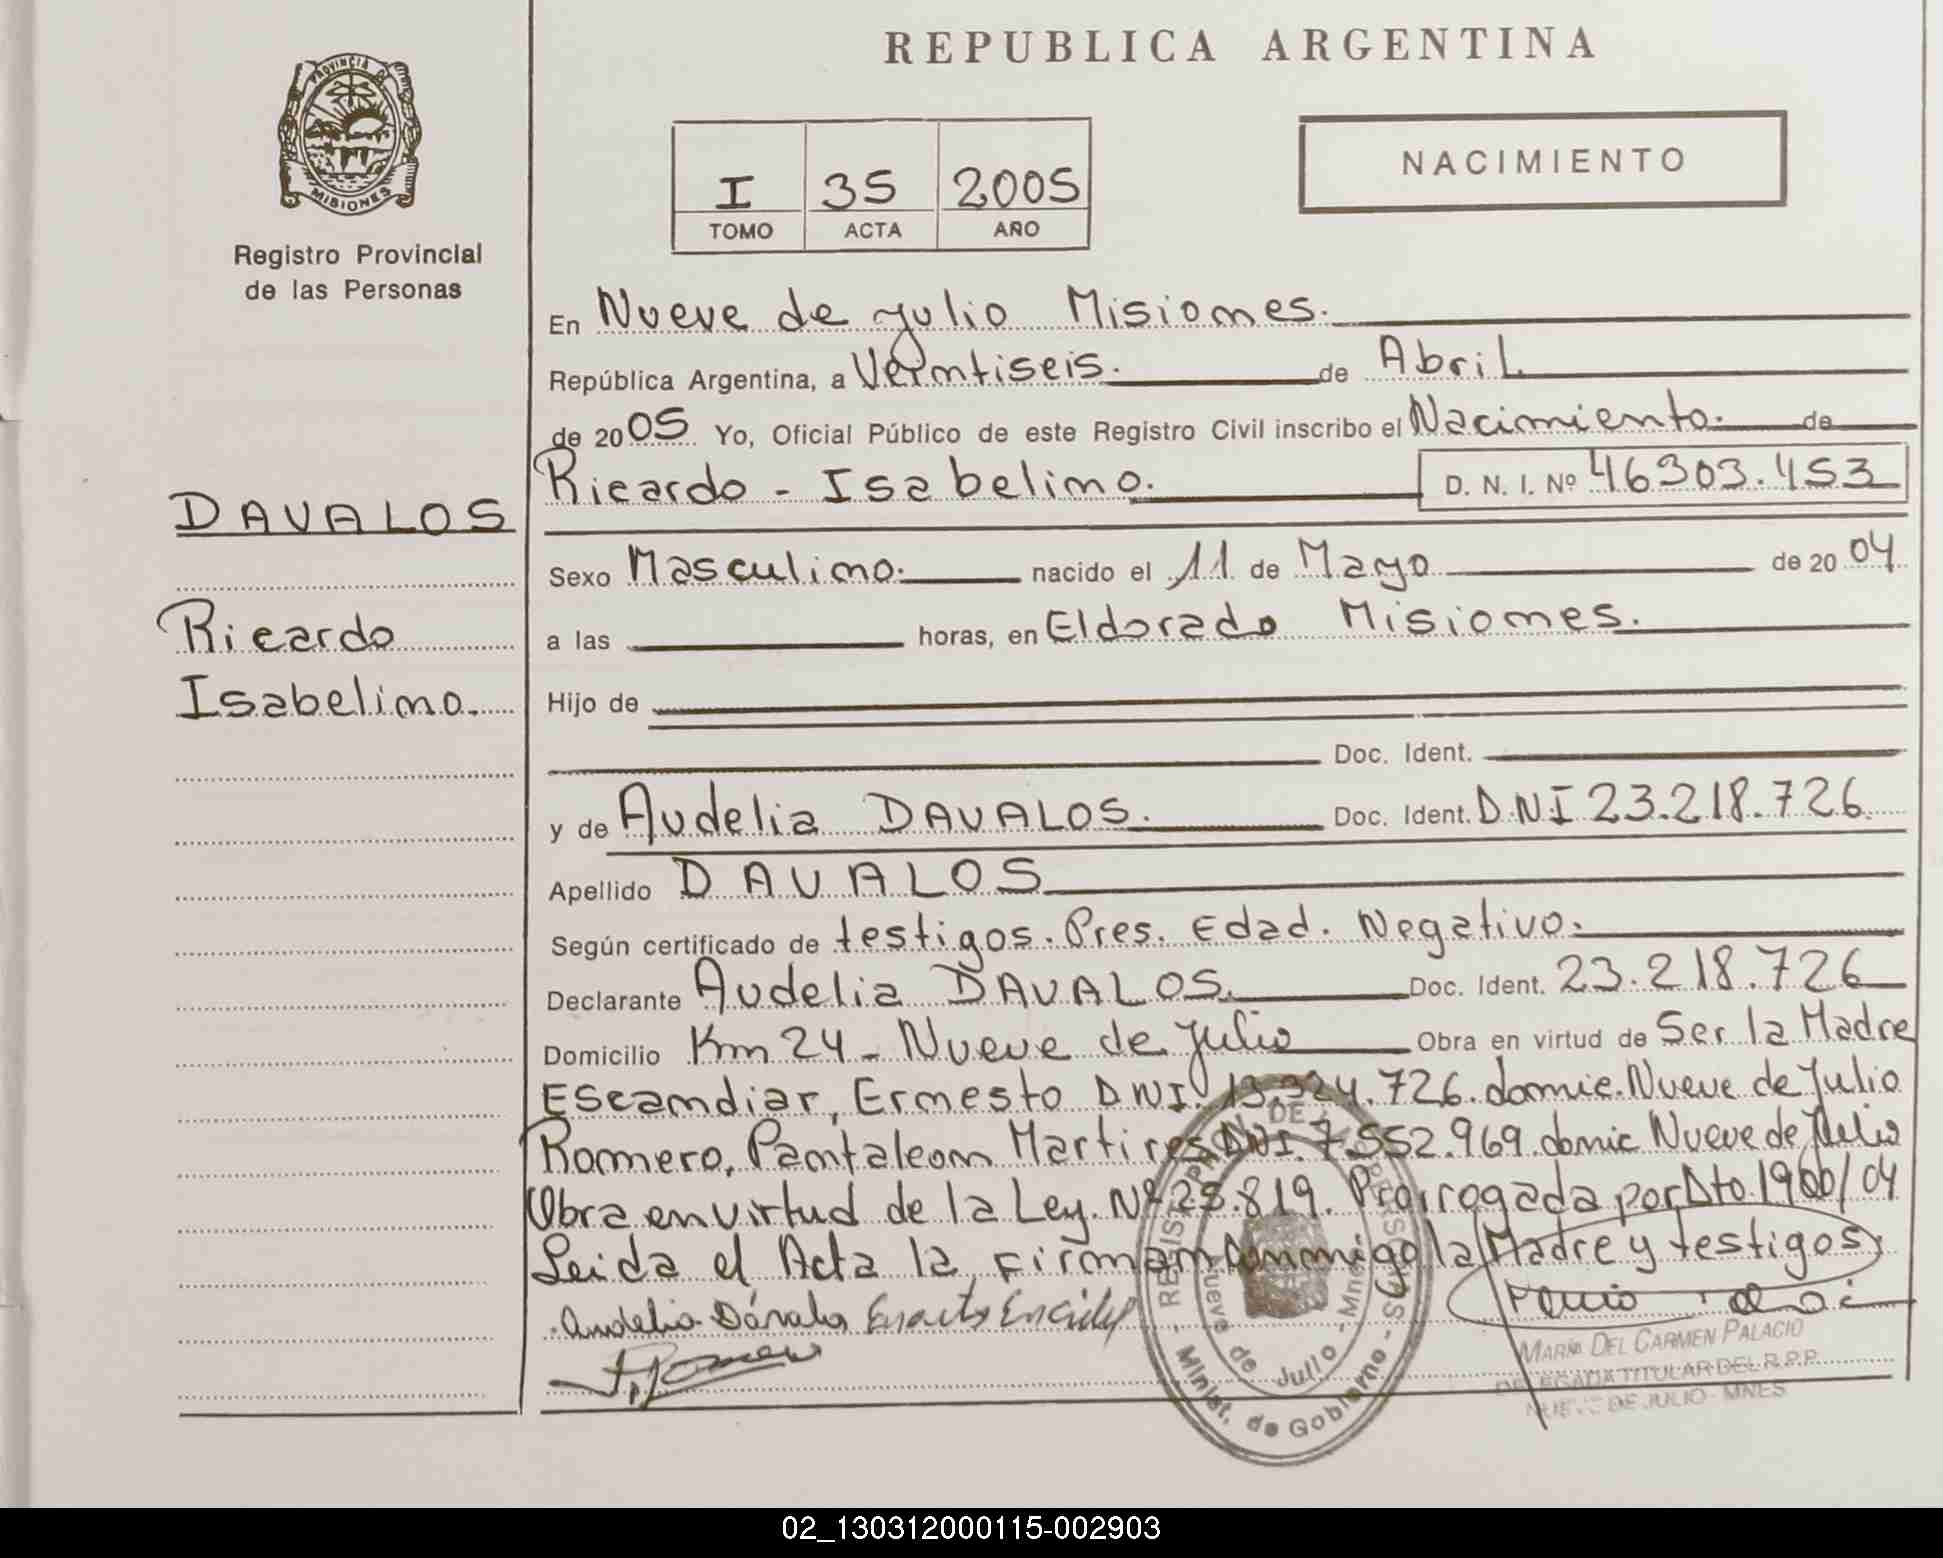 REPUBLICA ARGENTINA
PROVINCIA DE MISIONES
Registro Provincial
de las Personas
I 35 2005
TOMO ACTA AÑO
NACIMIENTO
En Nueve de Julio Misiones.
República Argentina, a Veintiseis. de Abril
de 2005 Yo, Oficial Público de este Registro Civil inscribo el Nacimiento. de
Ricardo - Isabelino. D. N. I. Nº 46303.453
DAVALOS
Ricardo
Isabelino.
Sexo Masculino. nacido el 11 de Mayo de 2004
a las horas, en Eldorado Misiones.
Hijo de
Doc. Ident.
y de Audelia DAVALOS. Doc. Ident. DNI 23.218.726
Apellido DAVALOS
Según certificado de testigos. Pres. Edad. Negativo.
Declarante Audelia DAVALOS. Doc. Ident. 23.218.726
Domicilio Km 24 - Nueve de Julio Obra en virtud de Ser la Madre
Escandiar, Ernesto DNI. 13.324.726. domic. Nueve de Julio
Romero, Pantaleon Martires DNI. 7.552.969. domic Nueve de Julio
Obra en virtud de la Ley. Nº 25.819. Prorrogada por Dto. 1900/04
Leida el Acta la, Firman Conmigo la Madre y testigos
Audelia Dávalos
REGIST. PROV. DE LAS PERSONAS
Nueve de Julio - Mnes
- Minist. de Gobierno -
MARÍA DEL CARMEN PALACIO
DELEGADA TITULAR DEL R.P.P.
NUEVE DE JULIO - MNES
02_130312000115-002903